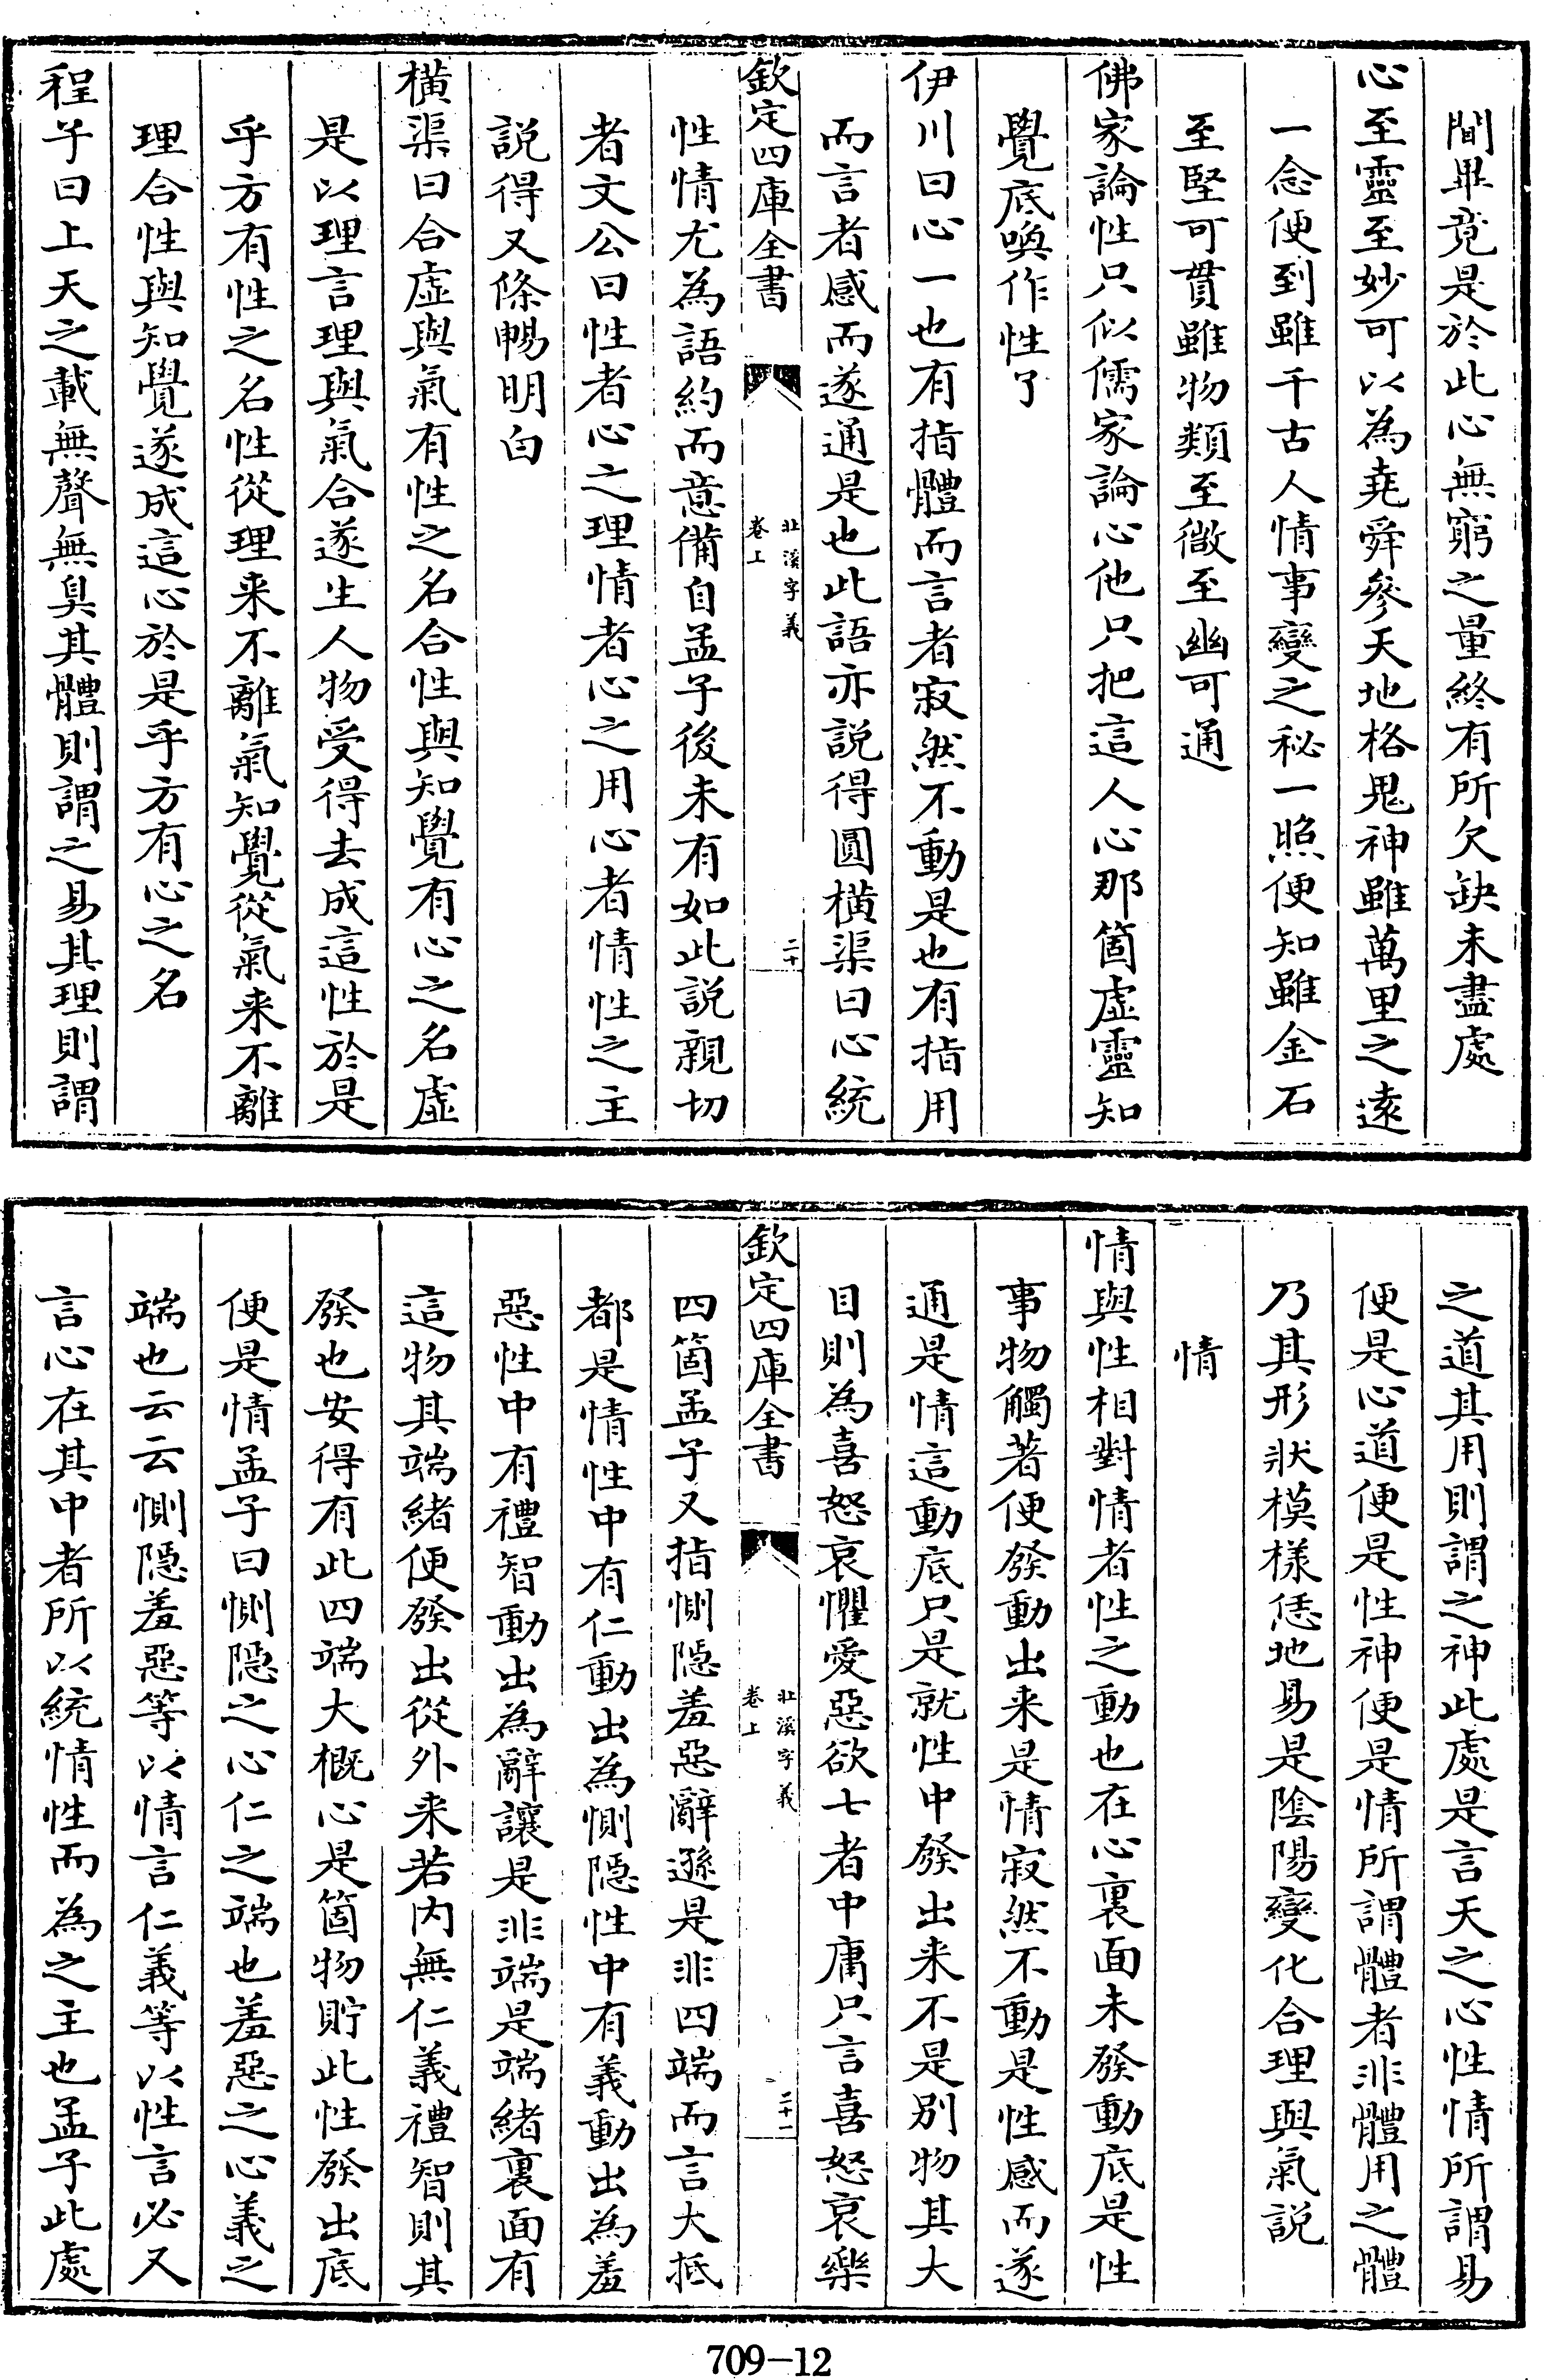 間畢竟是於此心無窮之量終有所欠缺未盡處
心至靈至妙可以為堯舜參天地格鬼神雖萬里之遠
一念便到雖千古人情事變之秘一照便知雖金石
至堅可貫雖物類至微至幽可通
佛家論性只似儒家論心他只把這人心那箇虚靈知
覺底喚作性了
伊川曰心一也有指體而言者寂然不動是也有指用
而言者感而遂通是也此語亦說得圓橫渠曰心統
欽定四庫全書
北溪字義
卷上
二十
性情尤為語約而意備自孟子後未有如此說親切
者文公曰性者心之理情者心之用心者情性之主
說得又條暢明白
橫渠曰合虚與氣有性之名合性與知覺有心之名虚
是以理言理與氣合遂生人物受得去成這性於是
乎方有性之名性從理来不離氣知覺從氣来不離
理合性與知覺遂成這心於是乎方有心之名
程子曰上天之載無聲無臭其體則謂之易其理則謂
之道其用則謂之神此處是言天之心性情所謂易
便是心道便是性神便是情所謂體者非體用之體
乃其形狀模樣恁地易是陰陽變化合理與氣說
情
情與性相對情者性之動也在心裏面未發動底是性
事物觸著便發動出来是情寂然不動是性感而遂
通是情這動底只是就性中發出来不是別物其大
目則為喜怒哀懼愛惡欲七者中庸只言喜怒哀樂
欽定四庫全書
北溪字義
卷上
二十一
四箇孟子又指惻隱羞惡辭遜是非四端而言大抵
都是情性中有仁動出為惻隱性中有義動出為羞
惡性中有禮智動出為辭讓是非端是端緒裏面有
這物其端緒便發出從外来若内無仁義禮智則其
發也安得有此四端大概心是箇物貯此性發出底
便是情孟子曰惻隱之心仁之端也羞惡之心義之
端也云云惻隱羞惡等以情言仁義等以性言必又
言心在其中者所以統情性而為之主也孟子此處
709-12